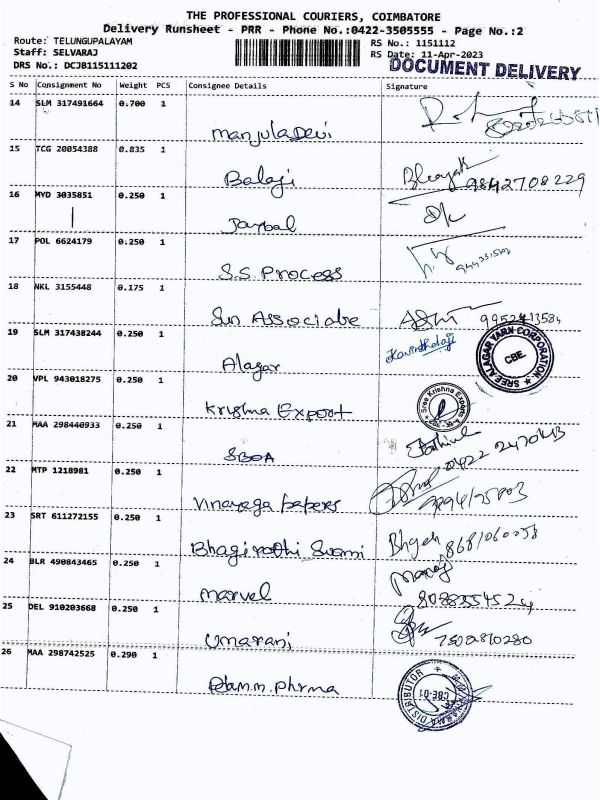 THE PROFESSIONAL COURIERS, COIMBATORE
Delivery Runsheet - PRR - Phone No.:0422-3505555 - Page No.:2
Route: TELUNGUPALAYAM RS No.: 1151112
Staff: SELVARAJ RS Date: 11-Apr-2023
DRS No.: DCJB115111202 DOCUMENT DELIVERY
S No Consignment No Weight PCS Consignee Details Signature
14 SLM 317491664 0.700 1
ManjulaDevi
15 TCG 20054388 0.835 1
Balaji 9842708229
16 MYD 3035851 0.250 1
17 POL 6624179 0.250 1
S.S. Process
18 NKL 3155448 0.175 1
Sun Associate
19 SLM 317438244 0.250 1
Alagar SREE ALAGAR YARN CORPORATION CBE.
20 VPL 943018275 0.250 1
Krishna Export Sree Krishna Exports
21 MAA 298440933 0.250 1
SBOA
22 MTP 1218981 0.250 1
Vinayaga papers
23 SRT 611272155 0.250 1
Bhagirathi Swami
24 BLR 490843465 0.250 1
Marvel
25 DEL 910203668 0.250 1
Umarani
26 MAA 298742525 0.290 1
DISTRIBUTOR CBE-01